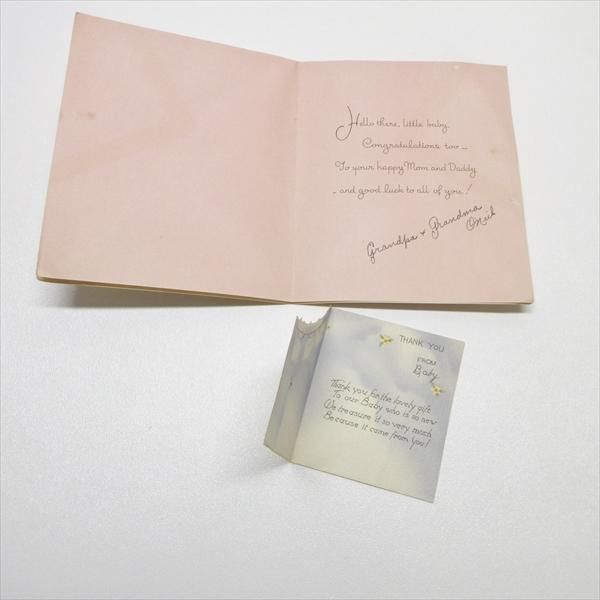 Hello there, little baby
Congratulations too —
To your happy Mom and Daddy
- and good luck to all of you!
Grandpa + Grandma
THANK YOU
FROM
Baby
Thank you for the lovely gift
To our Baby who is so new
We treasure it so very much
Because it came from you!